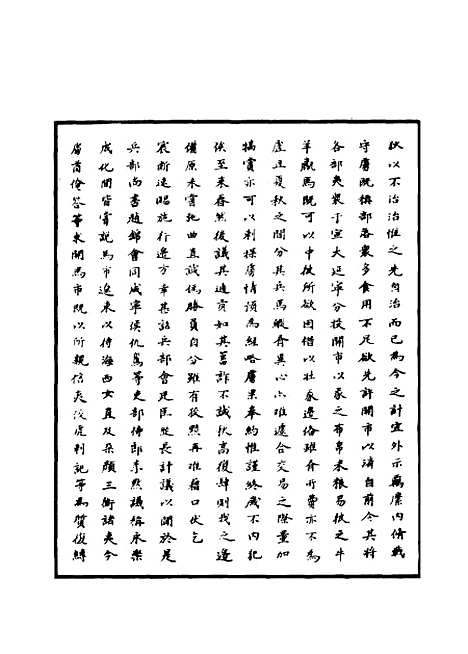 狄以不治治惟之先自治而已為今之計宜外示羈縻內脩戰
守虜既稱部落衆多食用不足欲先許開市以濟目前令其將
各部夷衆于宣大延寧分投開市以我之布帛米粮易彼之牛
羊驘馬既可以中彼所欲因借以壯我邊俗雖介所費亦不為
虛且夏秋之間分其兵馬緩脅異心亦雖遽合交易之際量加
犒賞亦可以刺探虜情頒為經略虜果奉約惟謹終歲不內犯
俟至来春然後議其通貢如其舊詐不誠秋高復肆則我之邊
備原未嘗弛曲直誠偽勝負自分雖有後點再难藉口伏乞
宸斷速賜施行邊方幸甚詔兵部會廷臣從長計議以聞於是
兵部尚書趙錦會同咸寧侯仇鸞等吏部侍郎李黙議稱永樂
成化間皆嘗設馬市遼東以待海西女直及朵顏三衛諸夷今
虜酋俺答等求開馬市既以所親信夷使虎剌記等為質復縛